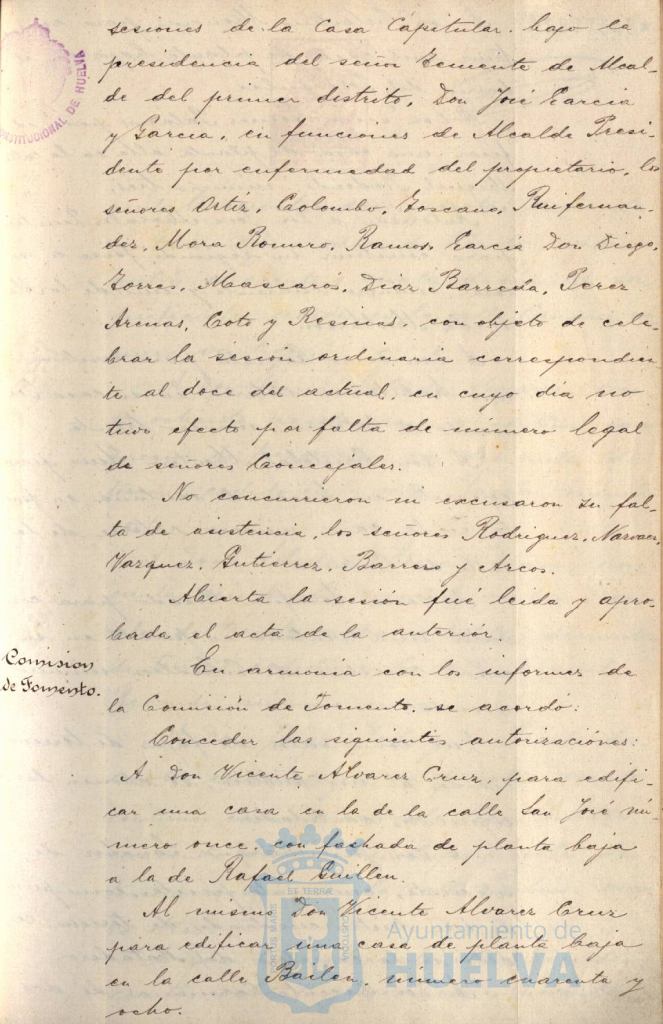 sesiones de la Casa Capitular, bajo la
presidencia del señor Teniente de Alcal-
de del primer distrito, Don José García
y García, en funciones de Alcalde Presi-
dente por enfermedad del propietario, los
señores Ortiz, Colombo, Toscano, Ruifernan-
dez, Mora Romero, Ramos, García Don Diego,
Torres, Mascarós, Diaz Barreda, Perez
Arenas, Coto y Resinas, con objeto de cele-
brar la sesión ordinaria correspondien-
te al doce del actual, en cuyo dia no
tuvo efecto por falta de número legal
de señores Concejales.
No concurrieron ni excusaron su fal-
ta de asistencia, los señores Rodriguez, Narvaez,
Vazquez, Gutierrez, Barrero y Arcos.
Abierta la sesión fué leida y apro-
bada el acta de la anteriór.
Comision
de Fomento.
En armonia con los informes de
la Comisión de Fomento, se acordó:
Conceder las siguientes autorizaciónes:
A Don Vicente Alvarez Cruz, para edifi-
car una casa en la de la calle San José nú-
mero once, con fachada de planta baja
a la de Rafael Guillen.
Al mismo Don Vicente Alvarez Cruz
para edificar una casa de planta baja
en la calle Bailen, número cuarenta y
ocho.
CONSTITUCIONAL DE HUELVA
PORTUS MARIS
ET TERRÆ
CUSTODIA
Ayuntamiento de
HUELVA